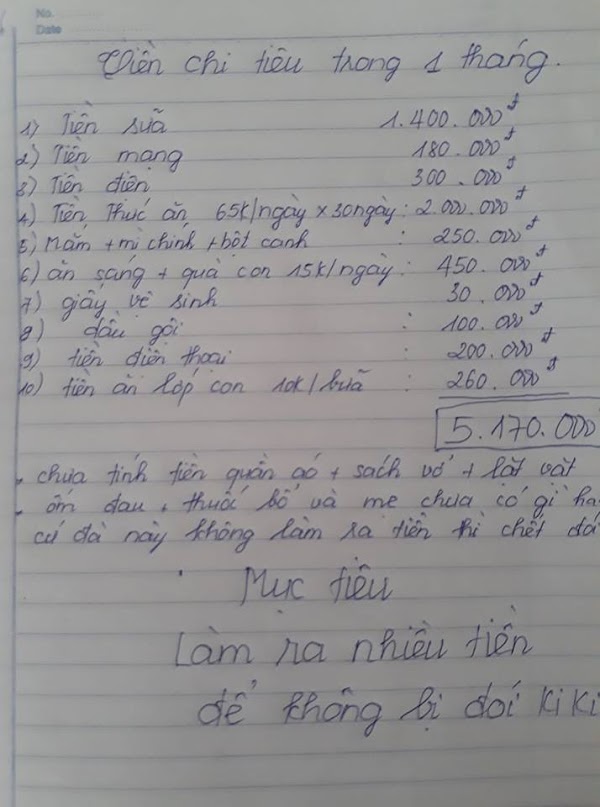 No.
Date
Tiền chi tiêu trong 1 tháng.
1) Tiền sữa 1.400.000đ
2) Tiền mạng 180.000đ
3) Tiền điện 300.000đ
4) Tiền thức ăn 65k/ngày x 30ngày: 2.000.000đ
5) Mắm + mì chính + bột canh : 250.000đ
6) ăn sáng + quà con 15k/ngày: 450.000đ
7) giấy vệ sinh 30.000đ
8) dầu gội : 100.000đ
9) tiền điện thoại : 200.000đ
10) tiền ăn lớp con 10k/bữa : 260.000đ
5.170.000
. chưa tính tiền quần áo + sách vở + lặt vặt
. ốm đau, thuốc bổ và mẹ chưa có gì
cứ đà này không làm ra tiền thì chết đói
Mục tiêu
Làm ra nhiều tiền
để không bị đói Ki Ki